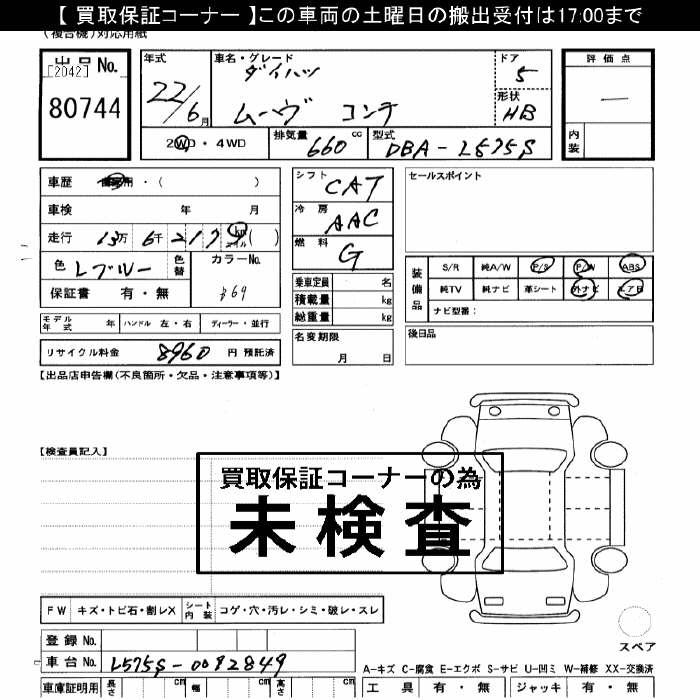 【 買取保証コーナー 】この車両の土曜日の搬出受付は17:00まで
(複合機)対応用紙
出品 No.
[2042]
80744
年式
22/6月
車名・グレード
ダイハツ
ムーヴ コンテ
ドア
5
形状
HB
評価点
—
内装
2WD ・ 4WD
排気量 660 cc
型式 DBA - L575S
車歴 自家用 ・ ( )
車検 年 月
走行 13万 6千 2179 km マイル ( )
色 Lブルー
色替
カラーNo.
保証書 有 ・ 無
シフト CAT
冷房 AAC
燃料 G
乗車定員 名
積載量 kg
総重量 kg
セールスポイント
装備品
S/R 純A/W P/S P/W ABS
純TV 純ナビ 革シート 外ナビ エアB
ナビ型番：
モデル年式 年 ハンドル 左・右 ディーラー・並行
リサイクル料金 8960 円 預託済
名変期限
月 日
後日品
【出品店申告欄(不良箇所・欠品・注意事項等)】
【検査員記入】
買取保証コーナーの為
未検査
FW キズ・トビ石・割レX シート内装 コゲ・穴・汚レ・シミ・破レ・スレ
スペア
登録 No.
車台 No. L575S-0082849
A-キズ C-腐食 E-エクボ S-サビ U-凹ミ W-補修 XX-交換済
車庫証明用 長さ cm 幅 cm 高さ cm
工具 有 ・ 無 ジャッキ 有 ・ 無